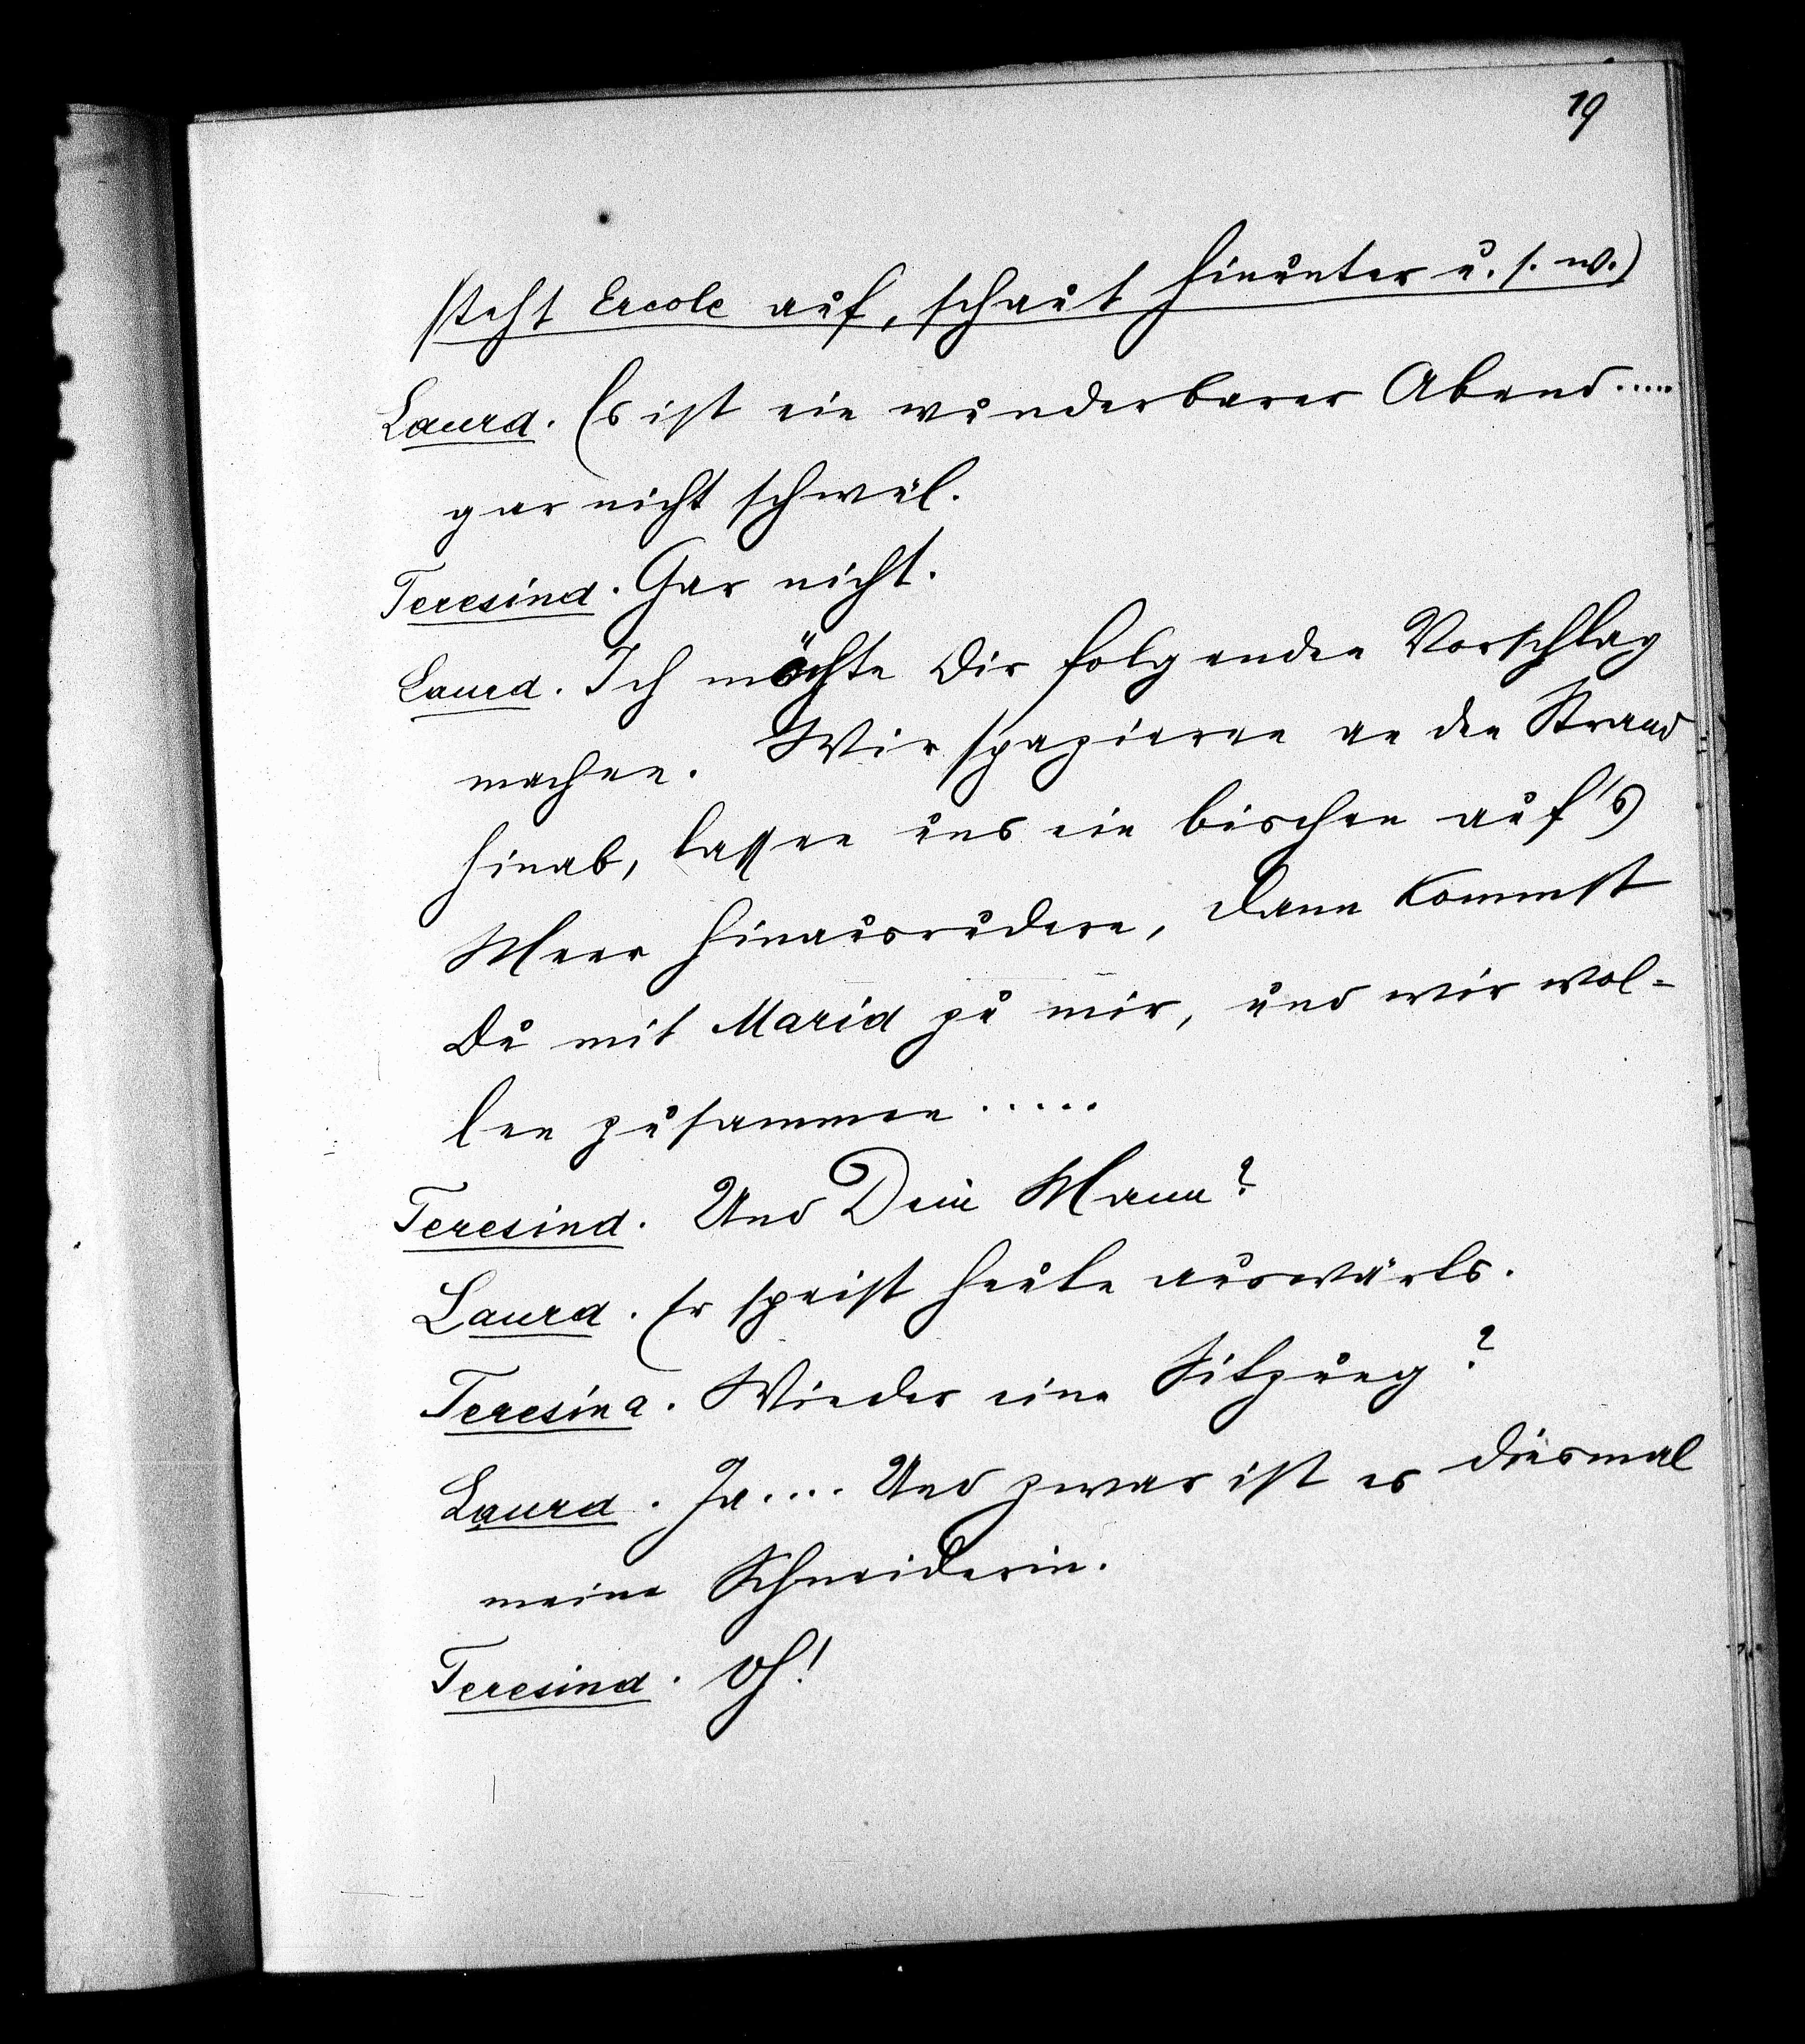 19
steht Ercole auf, schaut hinunter u. s. w.)
Laura. Es ist ein wunderbarer Abend.....
gar nicht schwül.
Teresina. Gar nicht.
Laura. Ich möchte Dir folgenden Vorschlag
machen. Wir spazieren an den Strand
hinab, lassen uns ein bischen auf's
Meer hinausrudern, dann kommst
Du mit Maria zu mir, und wir wol=
len zusammen.....
Teresina. Und Dein Mann?
Laura. Er speist heute auswärts.
Teresina. Wieder eine Sitzung?
Laura. Ja.... Und zwar ist es diesmal
meine Schneiderin.
Teresina. Oh!